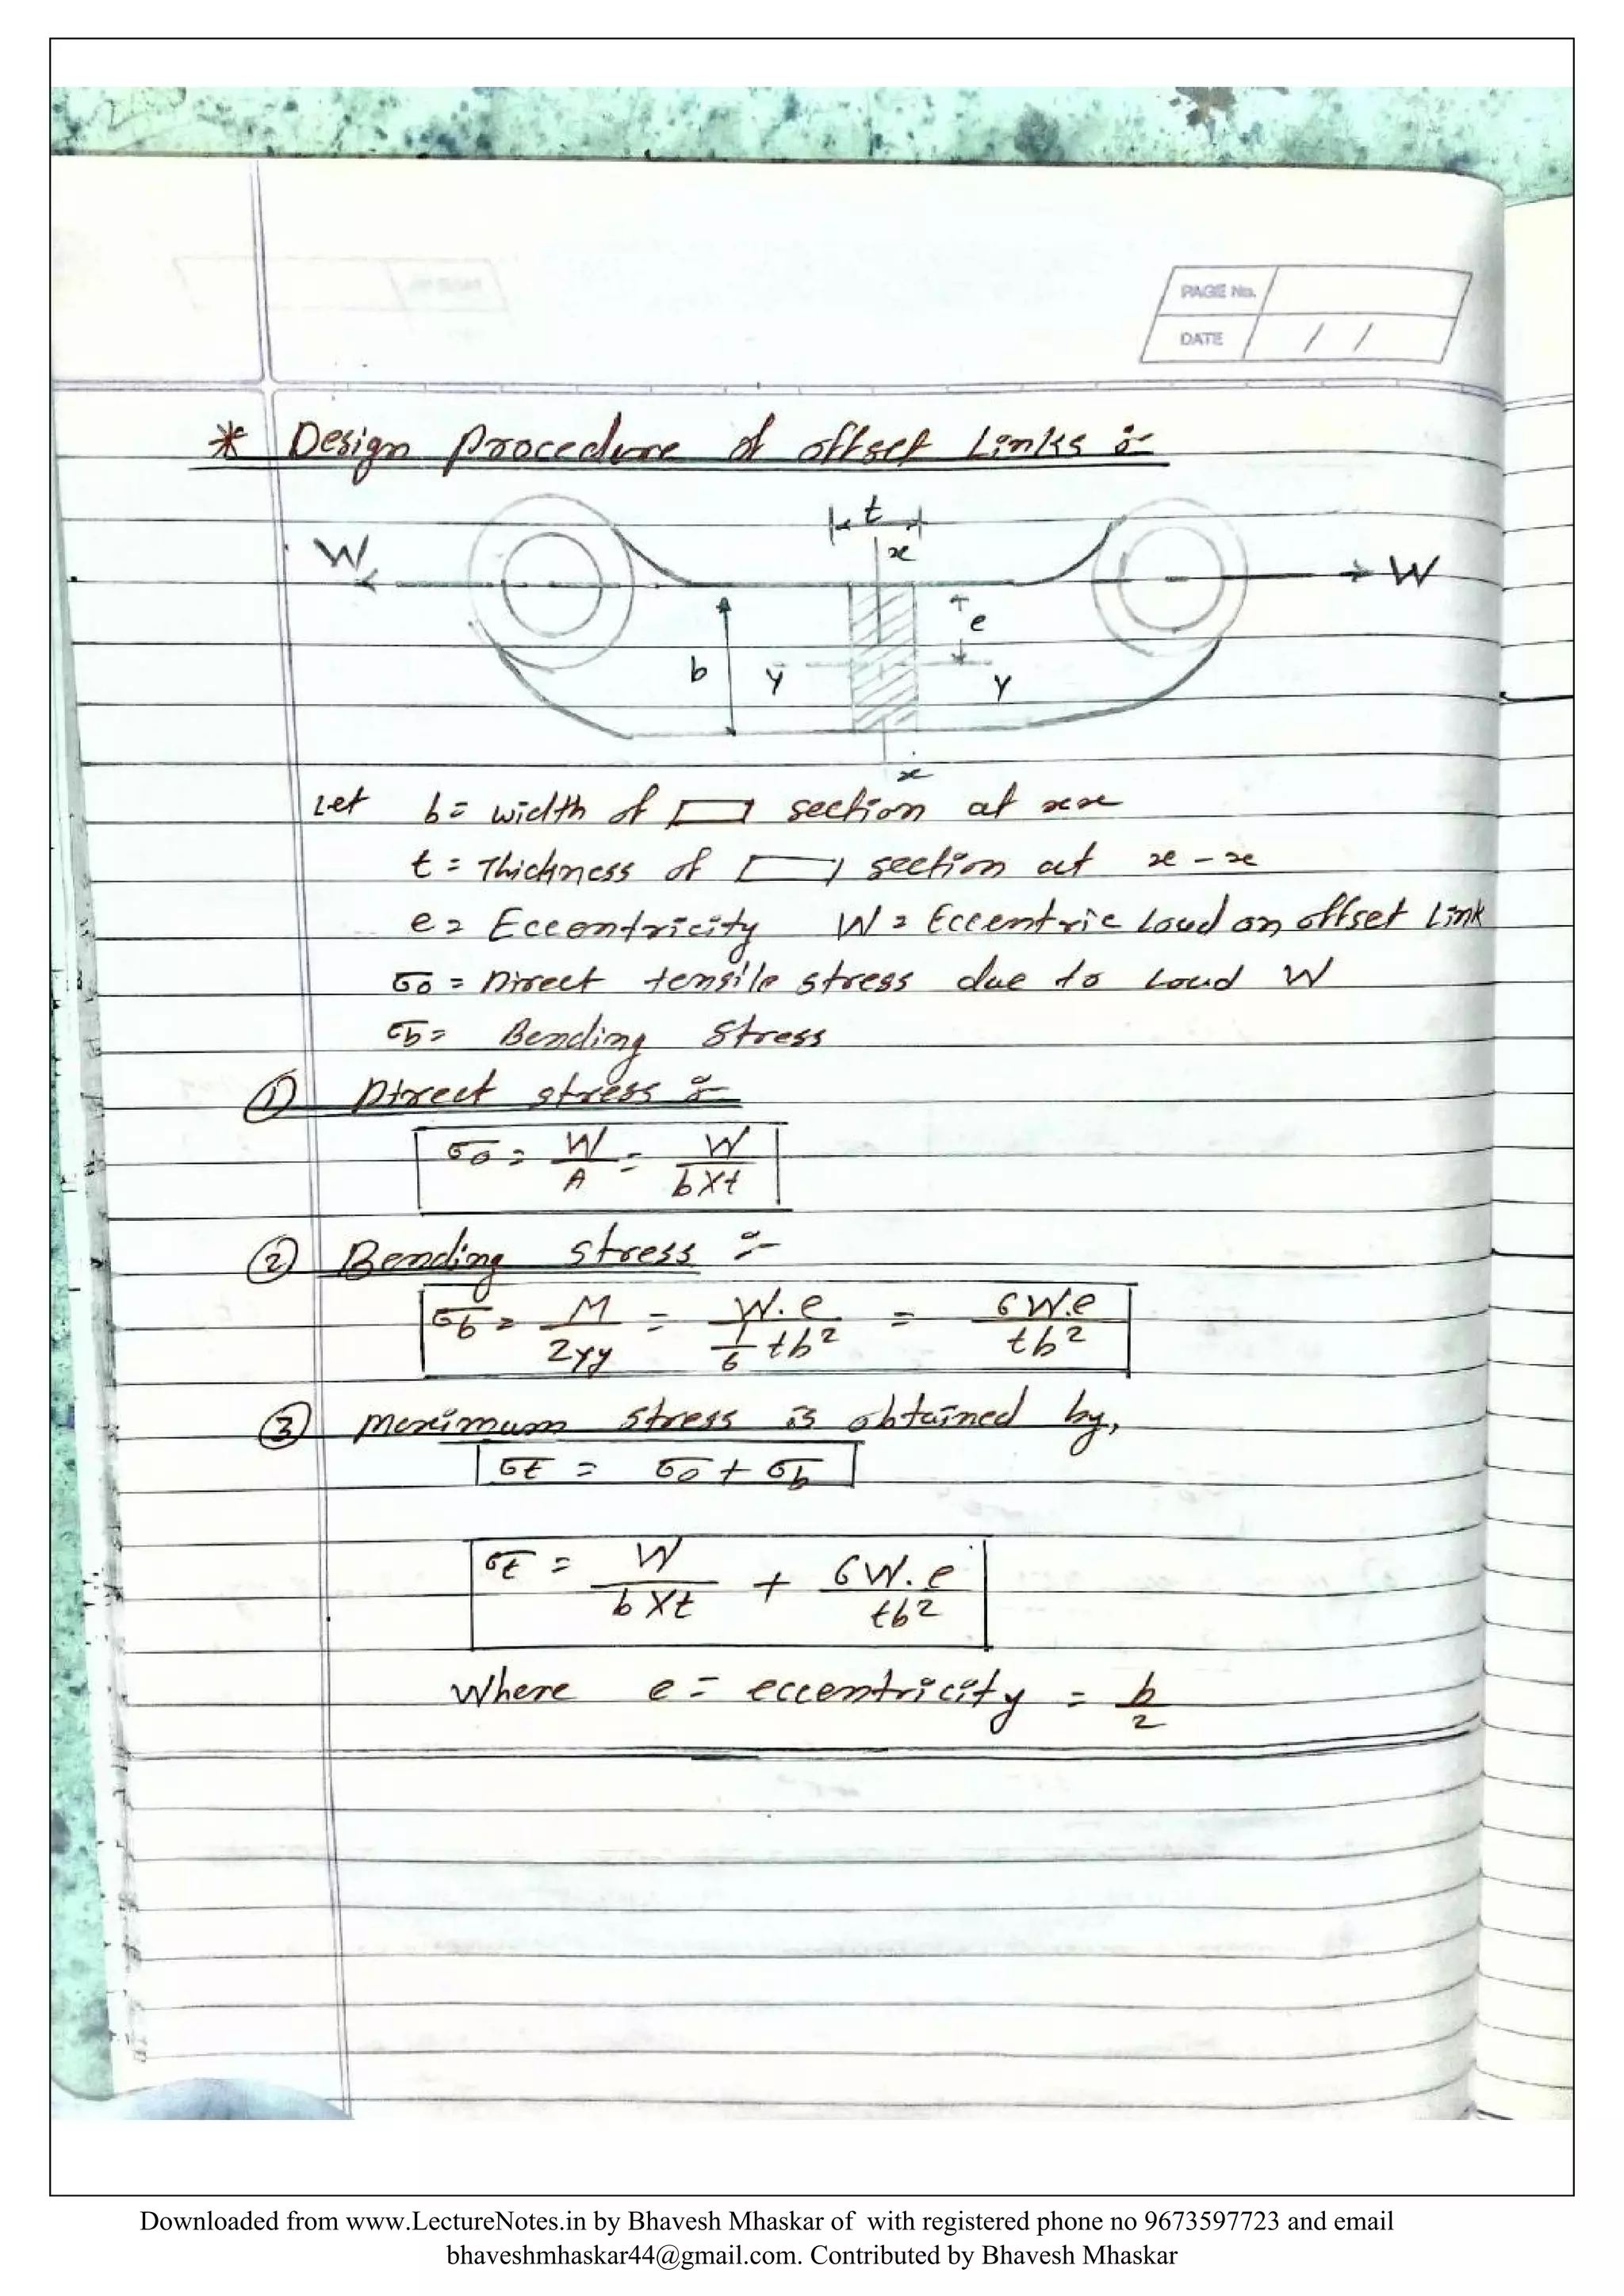 PAGE No.
DATE / /
* Design Procedure of offset Links :-
t
x
W W
e
b y y
x
Let b = width of ▭ section at xx
t = Thickness of ▭ section at x - x
e = Eccentricity W = Eccentric Load on offset Link
σo = Direct tensile stress due to Load W
σb = Bending Stress
① Direct stress :-
σo = W/A = W/(b×t)
② Bending stress :-
σb = M/Zyy = W.e/(1/6 tb²) = 6W.e/tb²
③ Maximum stress is obtained by,
σt = σo + σb
σt = W/(b×t) + 6W.e/tb²
Where e = eccentricity = b/2
Downloaded from www.LectureNotes.in by Bhavesh Mhaskar of with registered phone no 9673597723 and email
bhaveshmhaskar44@gmail.com. Contributed by Bhavesh Mhaskar